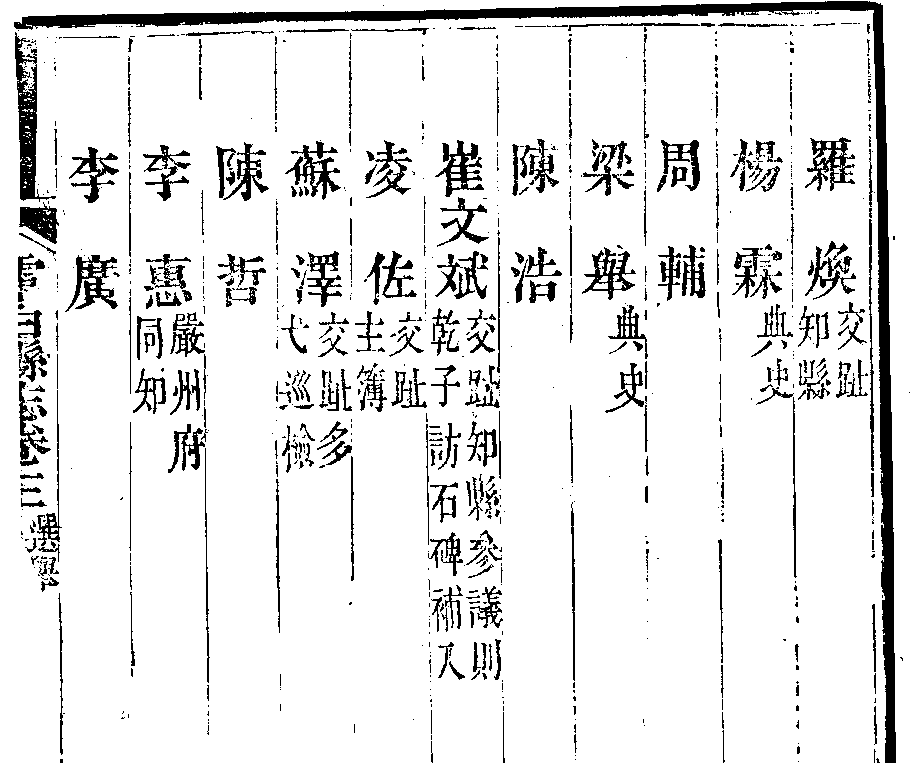 羅煥交趾知縣
楊霖典史
周輔
梁舉典史
陳浩
崔文斌交趾知縣參議則乾子訪石碑補入
凌佐交趾主簿
蘇澤交趾多弋巡檢
陳哲
李惠嚴州府同知
李廣
縣志卷三 選舉